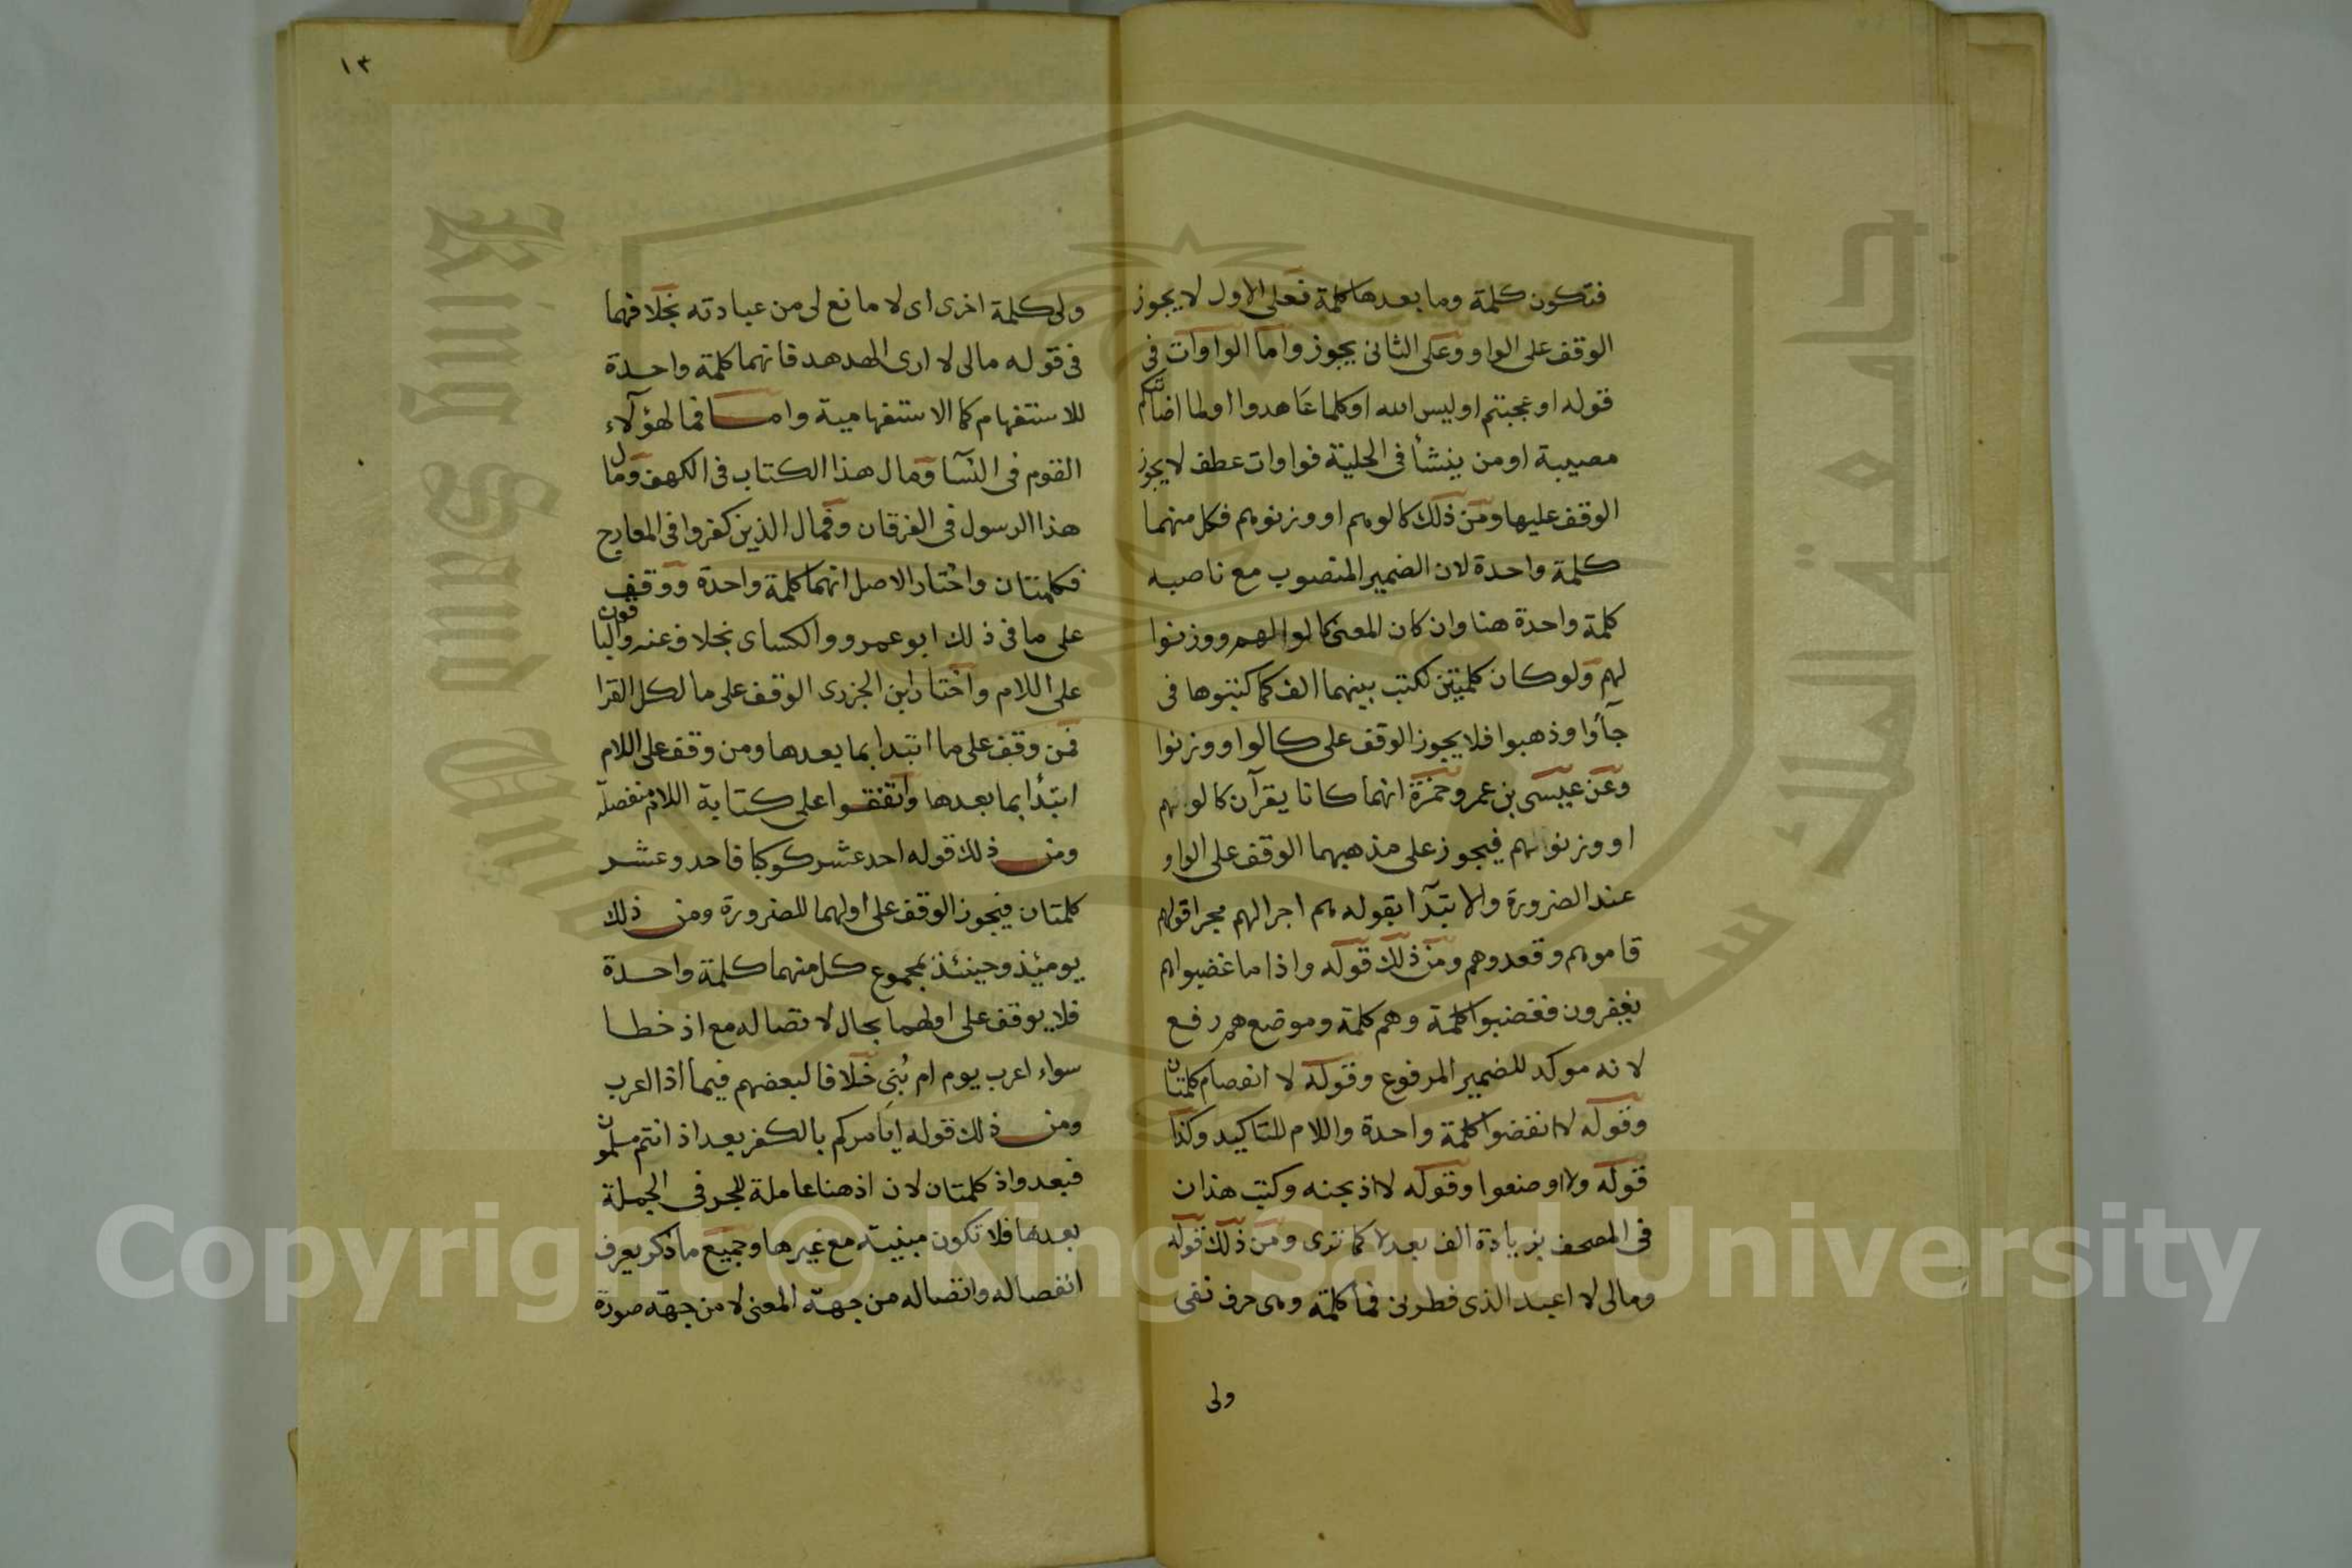 فتكون كلمة وما بعدها كلمة فعلى الاول لا يجوز
الوقف على الواو وعلى الثانى يجوز واما الواوات فى
قوله اوعجبتم اوليس الله اوكلما عاهدوا اولما اصابتكم
مصيبة اومن ينشأ فى الحلية فواوات عطف لا يجوز
الوقف عليها ومن ذلك كالوهم او وزنوهم فكل منهما
كلمة واحدة لان الضمير المنصوب مع ناصبه
كلمة واحدة هنا وان كان المعنى كالوا لهم ووزنوا
لهم ولو كان كلميتن لكتب بينهما الف كما كتبوها فى
جآؤا وذهبوا فلا يجوز الوقف على كالوا ووزنوا
وعن عيسى بن عمر وحمزة انهما كانا يقرآن كالوهم
او وزنوهم فيجوز على مذهبهما الوقف على الواو
عند الضرورة والابتدآ بقوله هم اجرا لهم مجرا قولهم
قاموهم وقعدوهم ومن ذلك قوله واذا ما غضبوا هم
يغفرون فغضبوا كلمة وهم كلمة وموضع هم رفع
لانه موكد للضمير المرفوع وقوله لا انفصام كلمتان
وقوله لاانفضوا كلمة واحدة واللام للتاكيد وكذا
قوله ولااوضعوا وقوله لااذبحنه وكتب هذان
فى المصحف بزيادة الف بعد لا كما ترى ومن ذلك قوله
ومالى لا اعبد الذى فطرنى فما كلمة وهى حرف نفى
ولى
١٣
ولى كلمة اخرى اى لا مانع لى من عبادته بخلافهما
فى قوله مالى لا ارى الهدهد فانهما كلمة واحدة
للاستفهام كما الاستفهامية واما فما لهؤلآء
القوم فى النسآ ومال هذا الكتاب فى الكهف ومال
هذا الرسول فى الفرقان وفمال الذين كفروا فى المعارج
فكلمتان واختار الاصل انهما كلمة واحدة ووقف
على ما فى ذلك ابو عمرو والكساى بخلاف عنه والباقون
على اللام واختار ابن الجزرى الوقف على ما لكل القرا
فمن وقف على ما ابتدا بما بعدها ومن وقف على اللام
ابتدأ بما بعدها واتفقوا على كتابة اللام منفصلة
ومن ذلك قوله احد عشر كوكبا فاحد وعشر
كلمتان فيجوز الوقف على اولهما للضرورة ومن ذلك
يومئذ وحينئذ بمجموع كل منهما كلمة واحدة
فلا يوقف على اولهما بحال لاتصاله مع اذ خطا
سواء اعرب يوم ام بُنى خلافا لبعضهم فيما اذا اعرب
ومن ذلك قوله ايامركم بالكفر بعد اذ انتم مسلمون
فبعد واذ كلمتان لان اذ هنا عاملة للجر فى الجملة
بعدها فلا تكون مبنية مع غيرها وجميع ما ذكر يعرف
انفصاله واتصاله من جهة المعنى لا من جهة صورة
Copyright © King Saud University